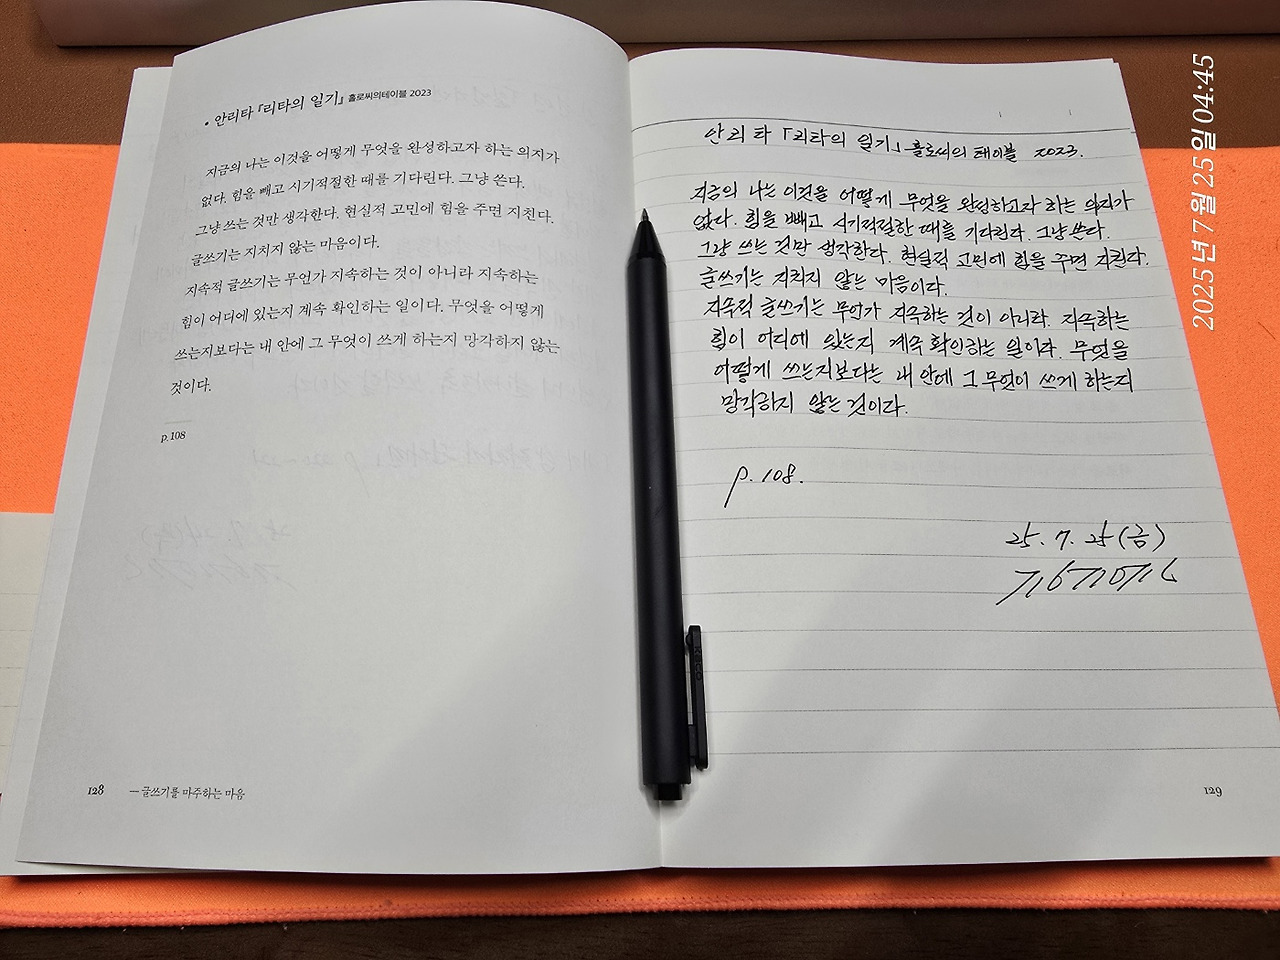 • 안리타 『리타의 일기』 홀로씨의테이블 2023
지금의 나는 이것을 어떻게 무엇을 완성하고자 하는 의지가
없다. 힘을 빼고 시기적절한 때를 기다린다. 그냥 쓴다.
그냥 쓰는 것만 생각한다. 현실적 고민에 힘을 주면 지친다.
글쓰기는 지치지 않는 마음이다.
지속적 글쓰기는 무언가 지속하는 것이 아니라 지속하는
힘이 어디에 있는지 계속 확인하는 일이다. 무엇을 어떻게
쓰는지보다는 내 안에 그 무엇이 쓰게 하는지 망각하지 않는
것이다.
p. 108
128 — 글쓰기를 마주하는 마음
안리타 「리타의 일기」 홀로씨의 테이블 2023.
지금의 나는 이것을 어떻게 무엇을 완성하고자 하는 의지가
없다. 힘을 빼고 시기적절한 때를 기다린다. 그냥 쓴다.
그냥 쓰는 것만 생각한다. 현실적 고민에 힘을 주면 지친다.
글쓰기는 지치지 않는 마음이다.
지속적 글쓰기는 무언가 지속하는 것이 아니라. 지속하는
힘이 어디에 있는지 계속 확인하는 일이다. 무엇을
어떻게 쓰는지보다는 내 안에 그 무엇이 쓰게 하는지
망각하지 않는 것이다.
p. 108.
25. 7. 25 (금)
129
2025년 7월 25일 04:45